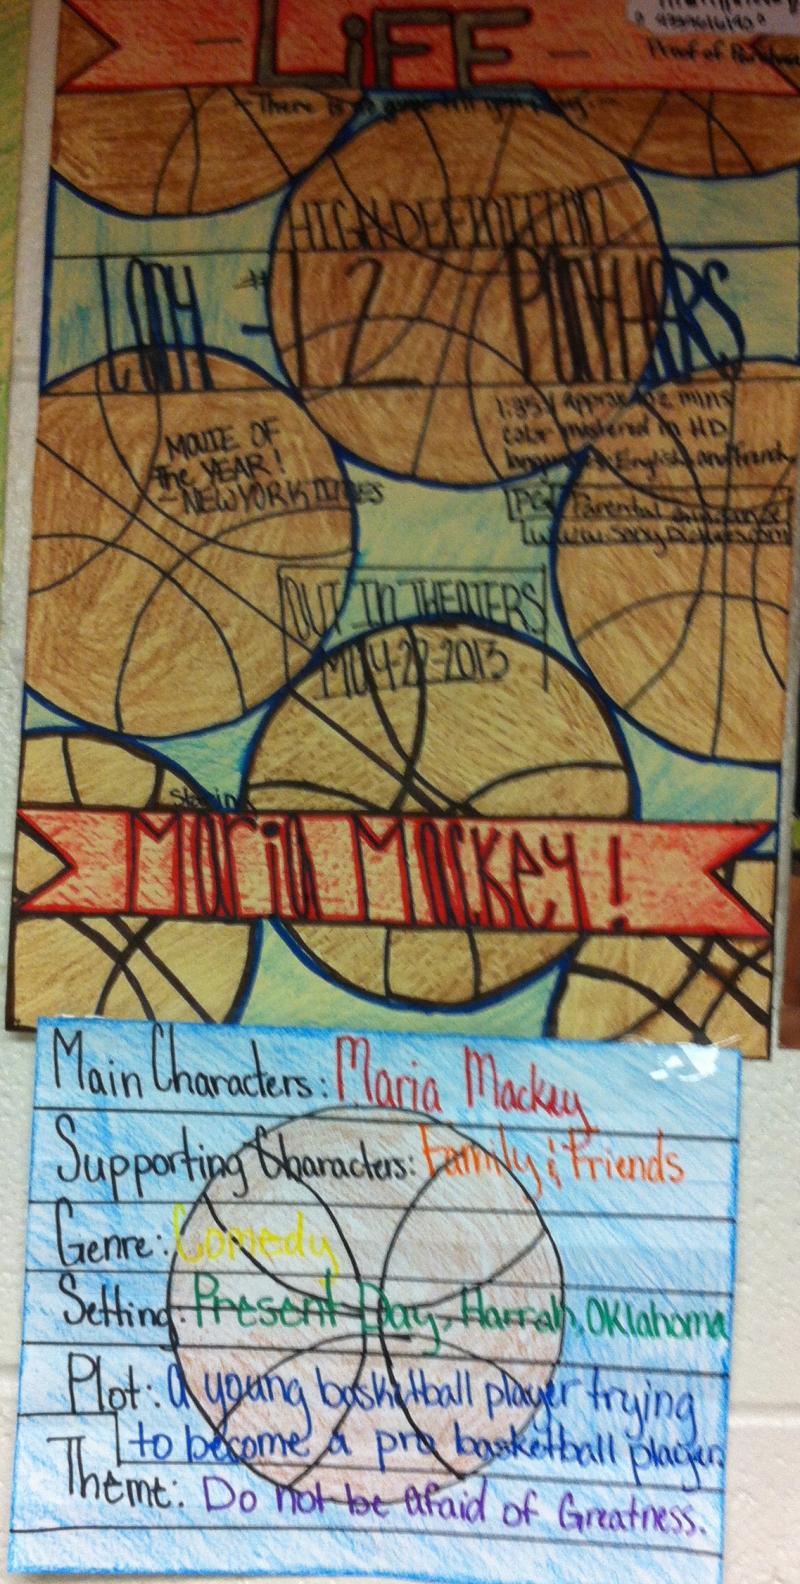 - LiFE -
Proof of
- There is no game till you play...
HIGH-DEFINITION
#12
1:85:1 approx. 102 mins
color mastered in HD
English and French
MOVIE OF
the YEAR!
- NEW YORK TIMES
PG Parental
OUT In THEATERS
4-22-2013
Staring
Maria Mackey!
Main Characters: Maria Mackey
Supporting Characters: Family & Friends
Genre: Comedy
Setting: Present Day, Harrah, Oklahoma
Plot: a young basketball player trying
to become a pro basketball player.
Theme: Do not be afaid of Greatness.